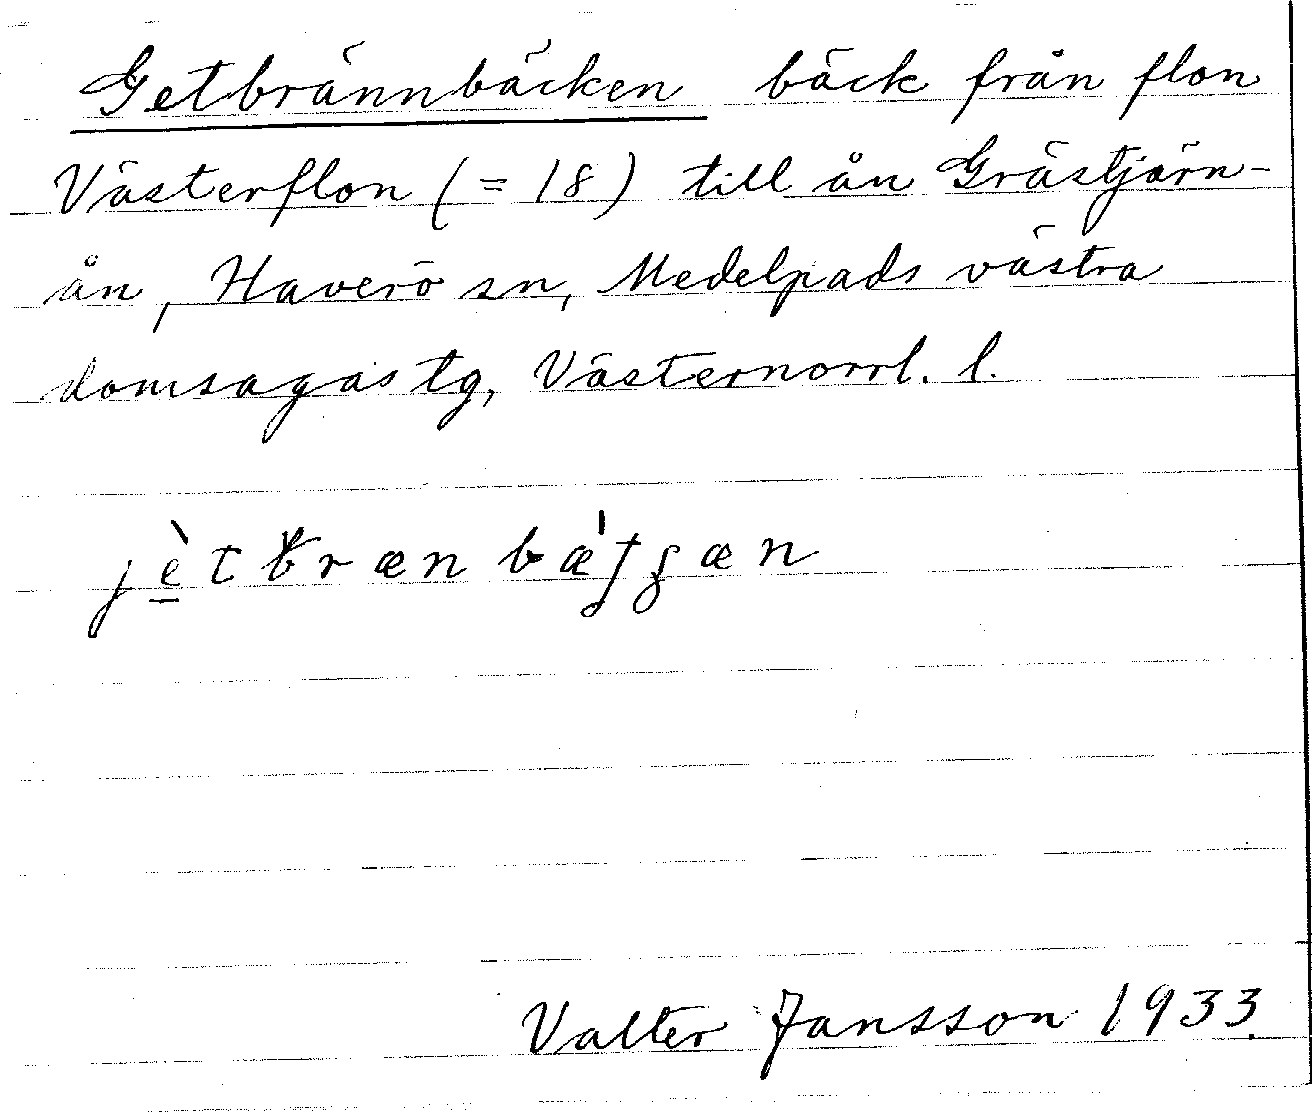 Getbrännbäcken bäck från flon
Västerflon (= 18) till ån Grästjärn-
ån, Haverö sn, Medelpads västra
domsagas tg, Västernorrl. l.
Valter Jansson 1933.